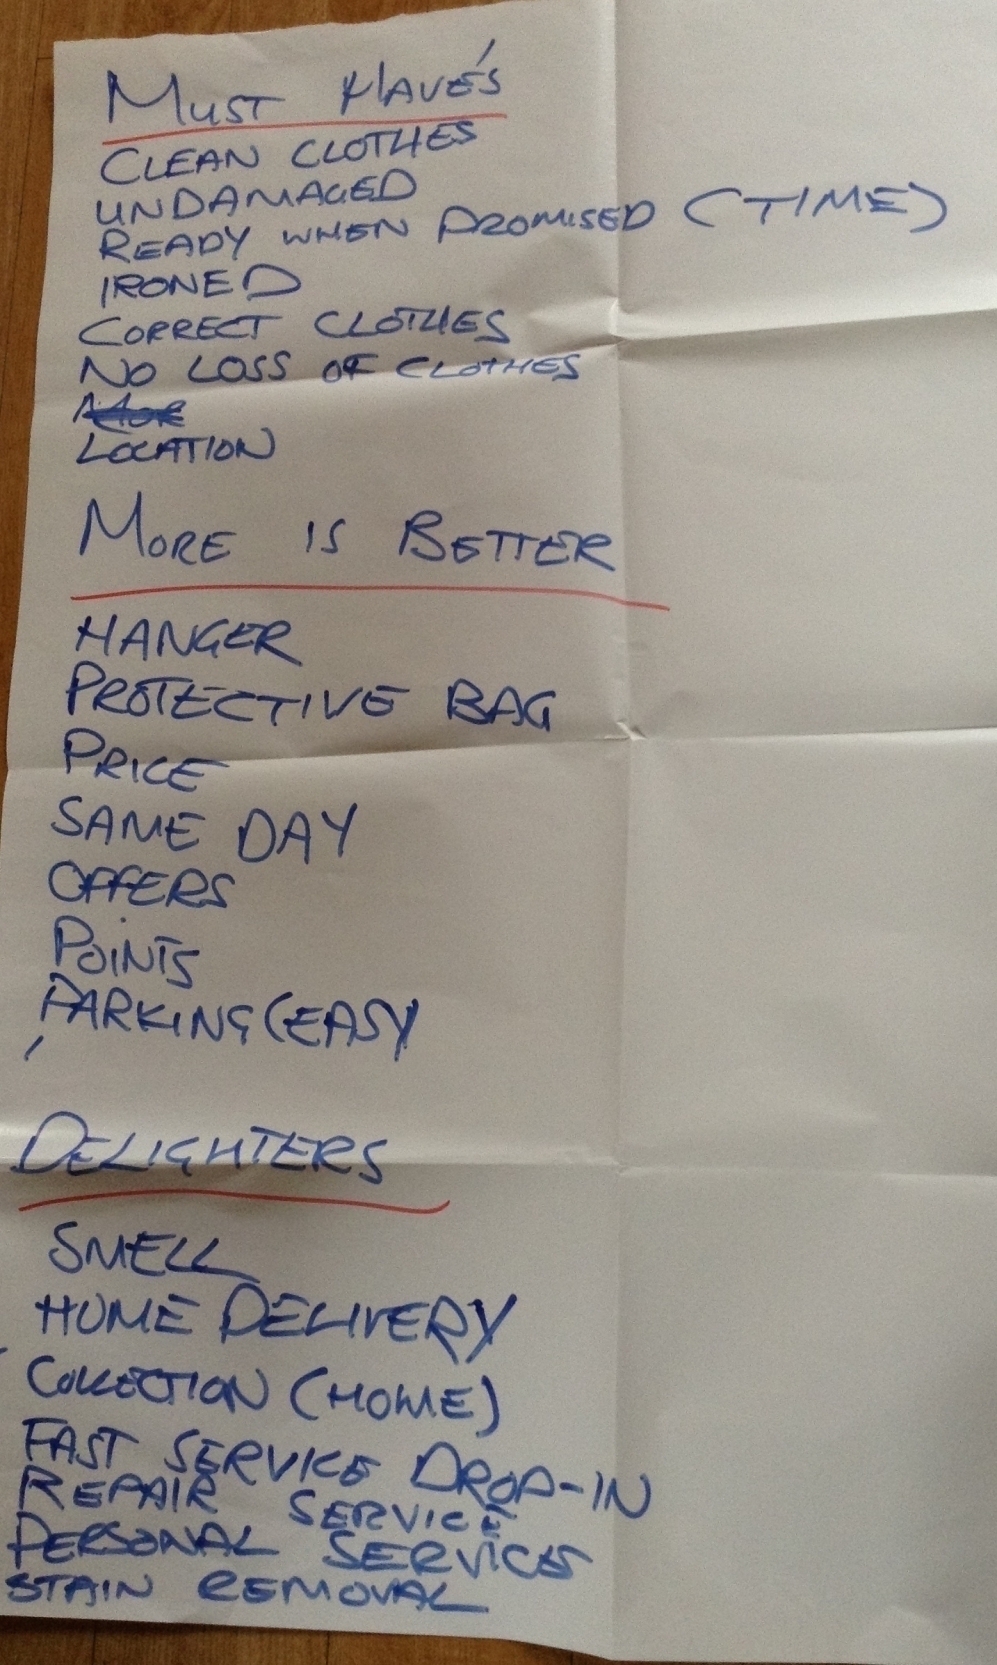 MUST HAVE'S
CLEAN CLOTHES
UNDAMAGED
READY WHEN PROMISED (TIME)
IRONED
CORRECT CLOTHES
NO LOSS OF CLOTHES
LOCATION
MORE IS BETTER
HANGER
PROTECTIVE BAG
PRICE
SAME DAY
OFFERS
POINTS
PARKING (EASY)
DELIGHTERS
SMELL
HOME DELIVERY
COLLECTION (HOME)
FAST SERVICE DROP-IN
REPAIR SERVICE
PERSONAL SERVICES
STAIN REMOVAL